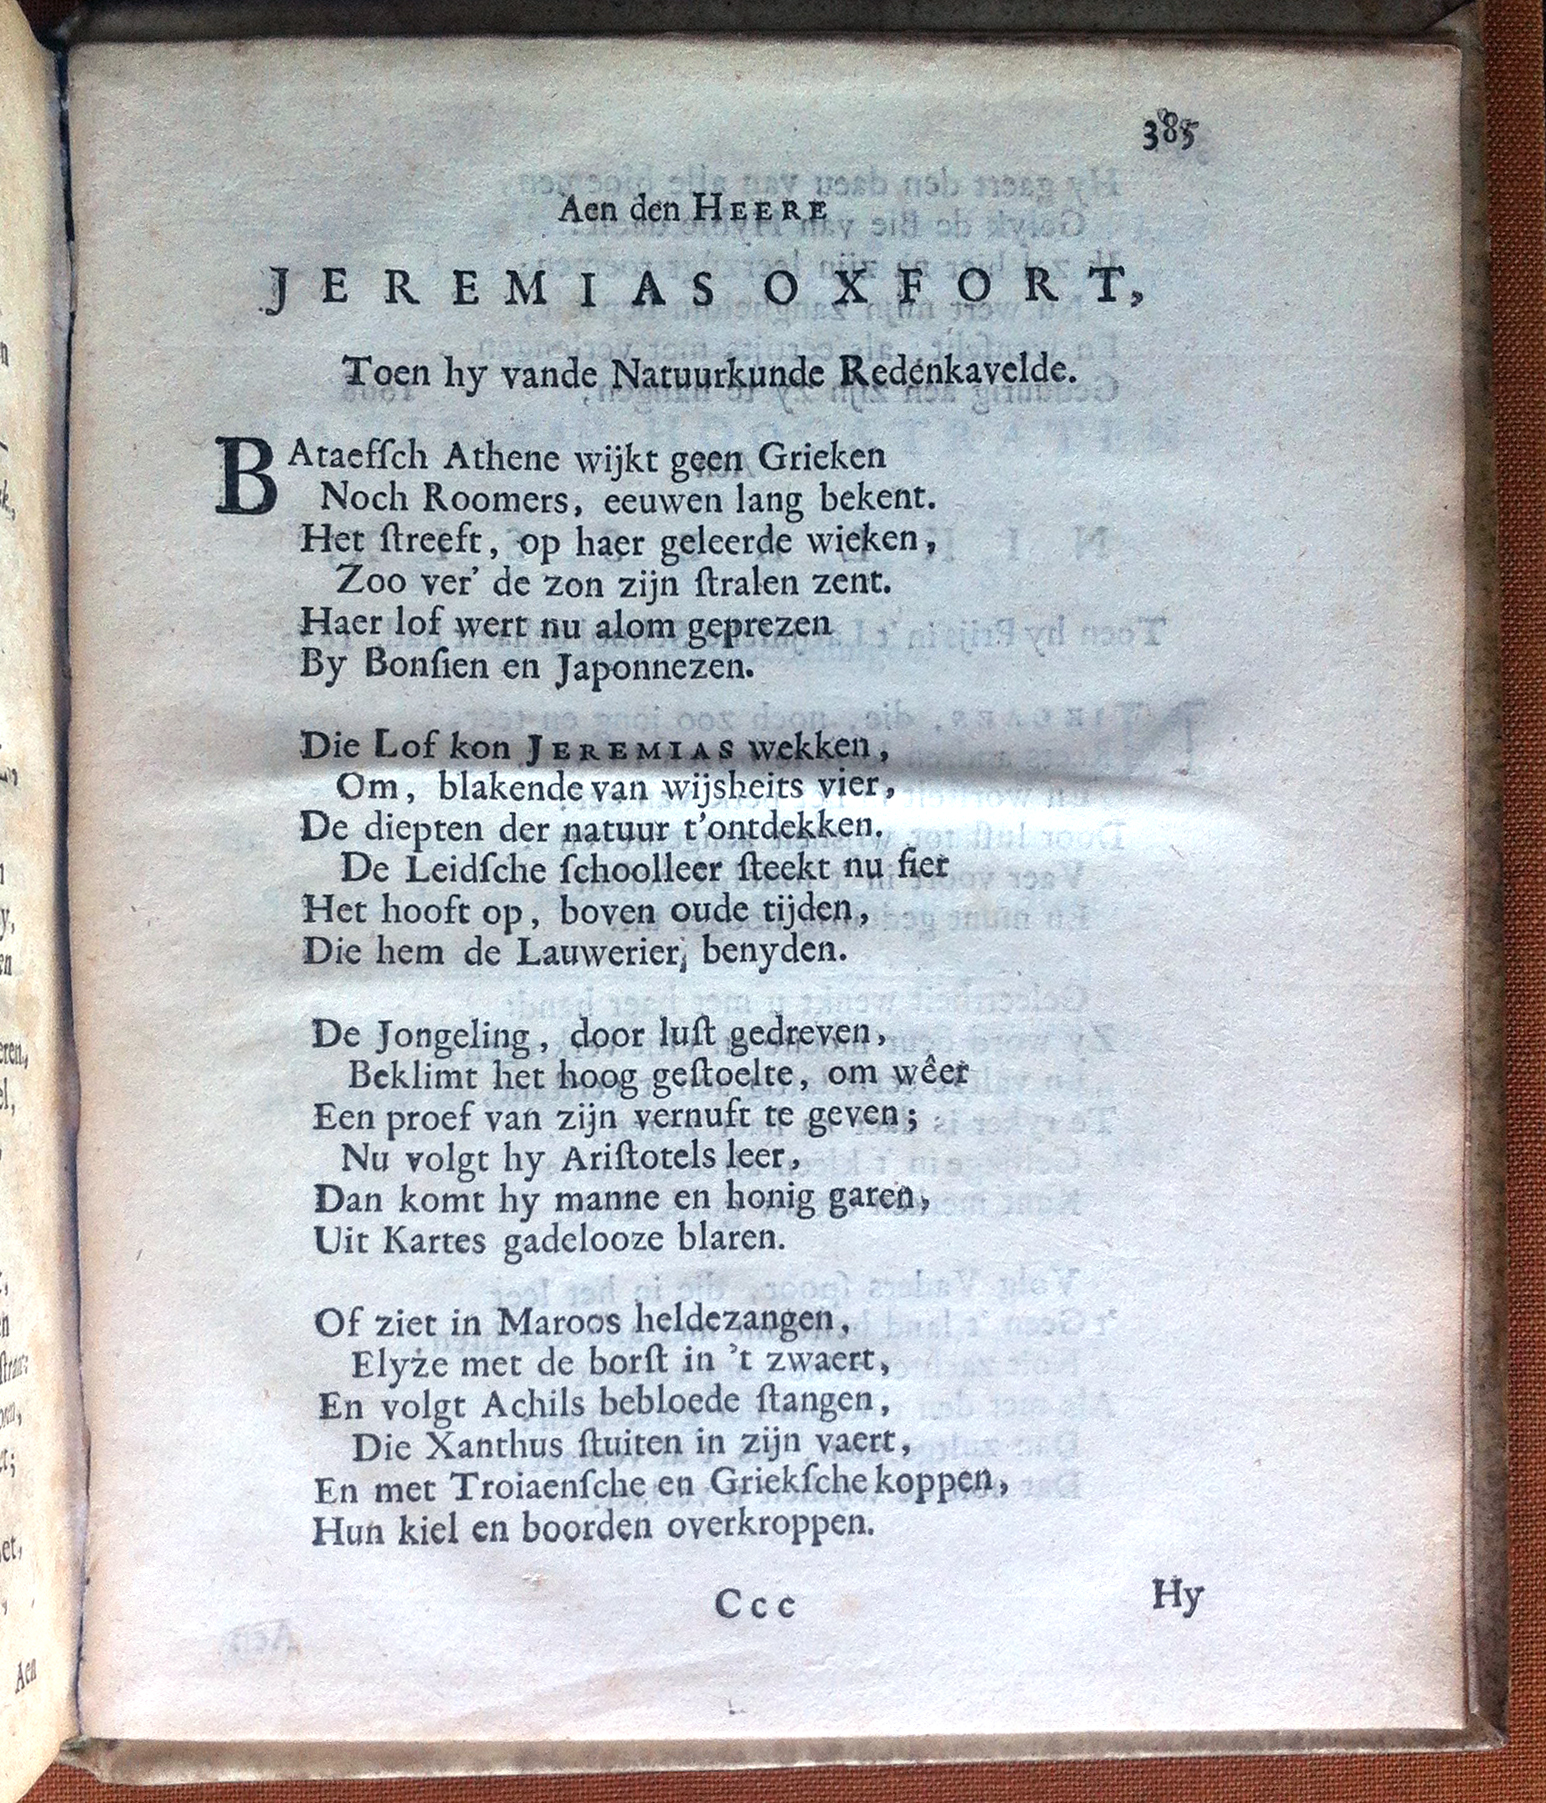 385
Aen den HEERE
JEREMIAS OXFORT,
Toen hy vande Natuurkunde Redenkavelde.
BAtaefſch Athene wijkt geen Grieken
Noch Roomers, eeuwen lang bekent.
Het ſtreeft, op haer geleerde wieken,
Zoo ver' de zon zijn ſtralen zent.
Haer lof wert nu alom geprezen
By Bonſien en Japonnezen.
Die Lof kon JEREMIAS wekken,
Om, blakende van wijsheits vier,
De diepten der natuur t'ontdekken.
De Leidſche ſchoolleer ſteekt nu fier
Het hooft op, boven oude tijden,
Die hem de Lauwerier, benyden.
De Jongeling, door luſt gedreven,
Beklimt het hoog geſtoelte, om wêer
Een proef van zijn vernuft te geven;
Nu volgt hy Ariſtotels leer,
Dan komt hy manne en honig garen,
Uit Kartes gadelooze blaren.
Of ziet in Maroos heldezangen,
Elyze met de borſt in 't zwaert,
En volgt Achils bebloede ſtangen,
Die Xanthus ſtuiten in zijn vaert,
En met Troiaenſche en Griekſche koppen,
Hun kiel en boorden overkroppen.
Ccc
Hy
Aen